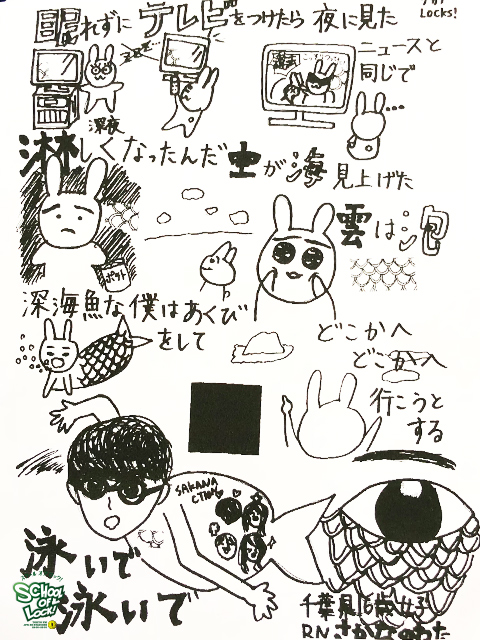 LOCKS!
眠れずにテレビをつけたら 夜に見た
zzz...
ニュースと
同じで
...
深夜
淋しくなったんだ 空が海 見上げた
雲は泡
ポテト
深海魚な僕はあくび
をして
どこかへ
どこかへ
行こうと
する
SAKANA
泳いで
泳いで
SCHOOL
OF
LOCK!
千葉県 16歳 女子
RN さかなのめった